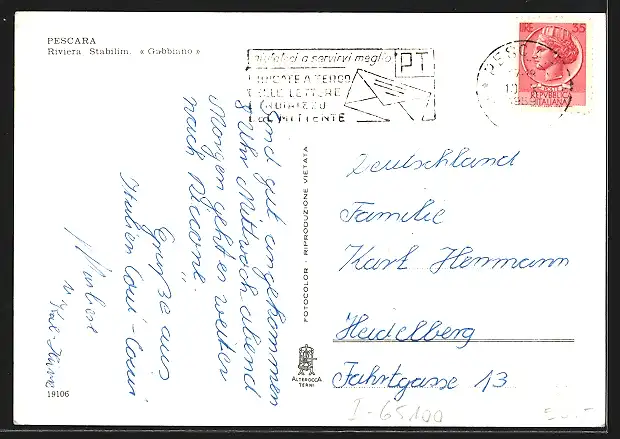 PESCARA
Riviera Stabilim. « Gabbiano »
aiutateci a servirvi meglio
PT
INDICATE A TERGO
DELLE LETTERE
L'INDIRIZZO
DEL MITTENTE
PESC
1959
LIRE 35
REPVBBLICA
ITALIANA
Sind gut angekommen
8 Uhr Mittwoch abend
Morgen geht es weiter
nach Riccione.
Grüße aus
Italien
FOTOCOLOR - RIPRODUZIONE VIETATA
ALTEROCCA
TERNI
Deutschland
Familie
Karl Herrmann
Heidelberg
Fahrtgasse 13
19106
I-65100